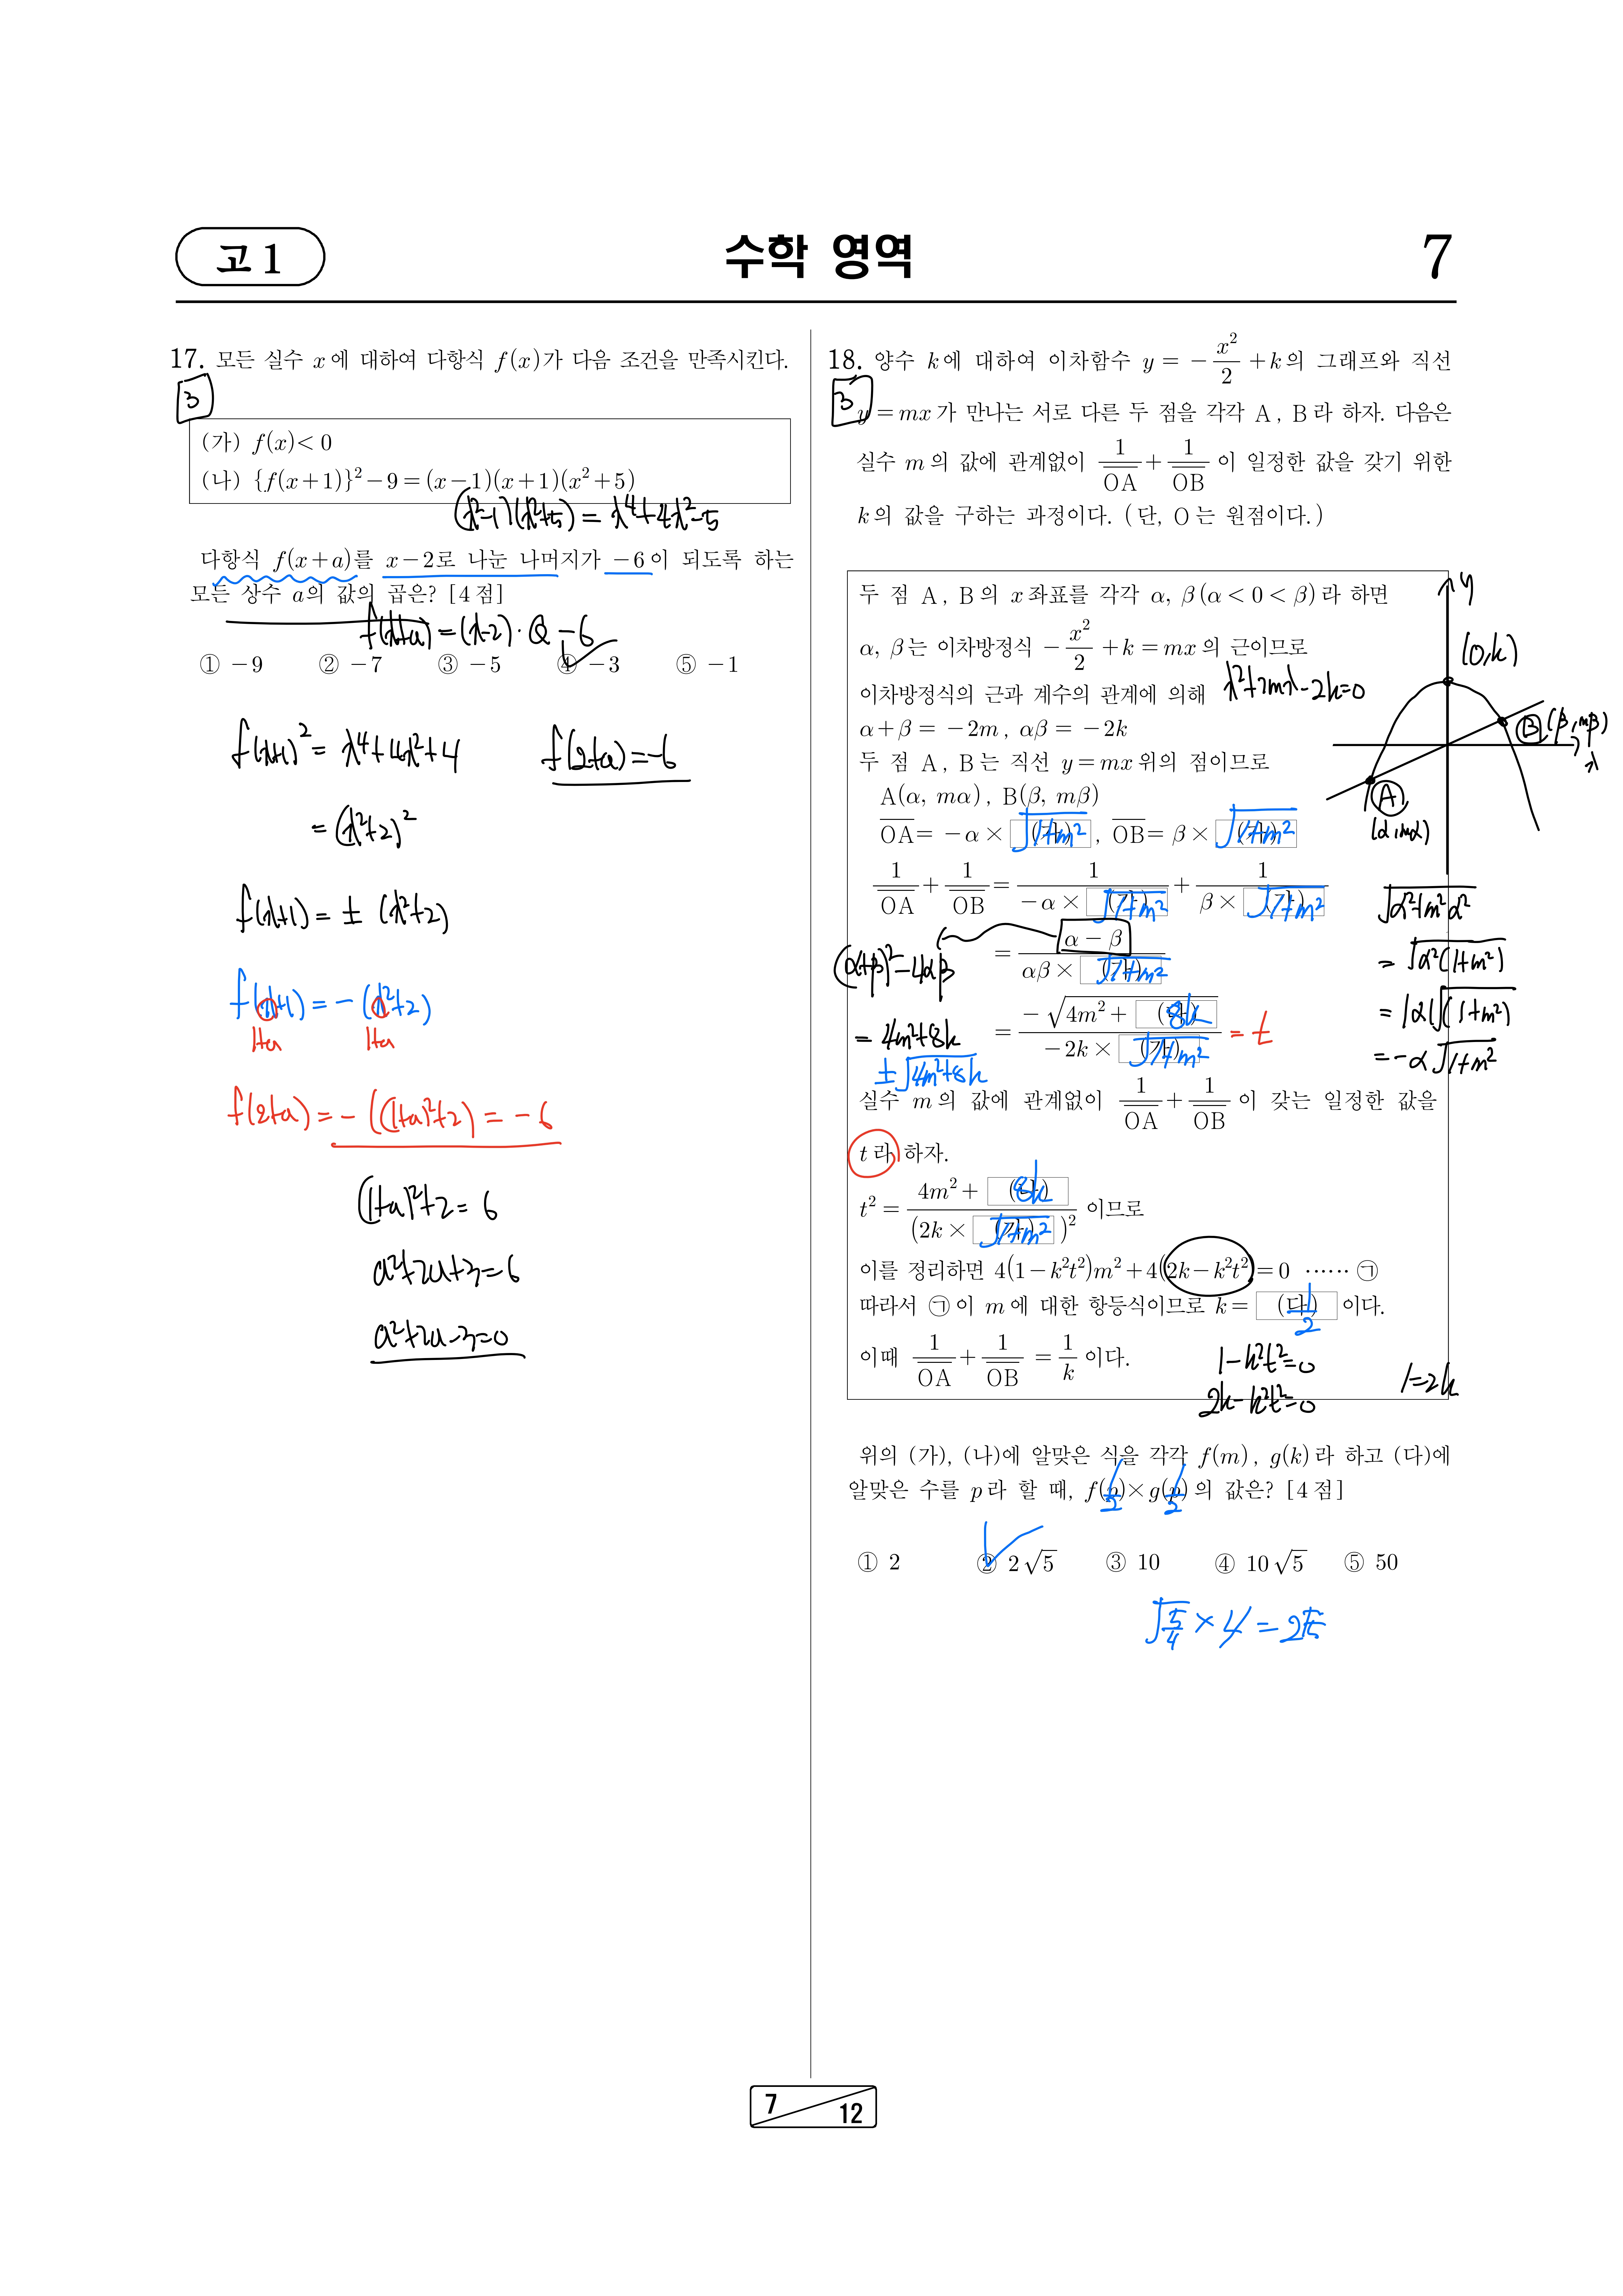 고 1
수학 영역
7
17. 모든 실수 x에 대하여 다항식 f(x)가 다음 조건을 만족시킨다.
3
(가) f(x)<0
(나) {f(x+1)}²-9=(x-1)(x+1)(x²+5)
(x²-1)(x²+5) = x⁴+4x²-5
다항식 f(x+a)를 x-2로 나눈 나머지가 -6이 되도록 하는
모든 상수 a의 값의 곱은? [4점]
f(x+a) = (x-2)·Q -6
① -9 ② -7 ③ -5 ④ -3 ⑤ -1
f(x+1)² = x⁴+4x²+4
f(2+a) = -6
= (x²+2)²
f(x+1) = ± (x²+2)
f(x+1) = - (x²+2)
1+a 1+a
f(2+a) = - ((1+a)²+2) = -6
(1+a)²+2 = 6
a²+2a+3=6
a²+2a-3=0
18. 양수 k에 대하여 이차함수 y = -x²/2 + k의 그래프와 직선
3
y=mx가 만나는 서로 다른 두 점을 각각 A, B라 하자. 다음은
실수 m의 값에 관계없이 1/OA + 1/OB 이 일정한 값을 갖기 위한
k의 값을 구하는 과정이다. (단, O는 원점이다.)
두 점 A, B의 x좌표를 각각 α, β(α<0<β)라 하면
α, β는 이차방정식 -x²/2 + k = mx의 근이므로
이차방정식의 근과 계수의 관계에 의해 x²+2mx-2k=0
α+β = -2m, αβ = -2k
두 점 A, B는 직선 y=mx 위의 점이므로
A(α, mα), B(β, mβ)
OA = -α × (가) √1+m², OB = β × (가) √1+m²
1/OA + 1/OB = 1/(-α × (가) √1+m²) + 1/(β × (가) √1+m²)
= (α-β)/(αβ × (가) √1+m²)
(α+β)²-4αβ
= 4m²+8k
± √4m²+8k
= -√(4m² + (나) 8k)/(-2k × (가) √1+m²) = t
실수 m의 값에 관계없이 1/OA + 1/OB 이 갖는 일정한 값을
t라 하자.
t² = (4m² + (나) 8k)/(2k × (가) √1+m²)² 이므로
이를 정리하면 4(1-k²t²)m²+4(2k-k²t²)=0 ⋯⋯ ㉠
따라서 ㉠이 m에 대한 항등식이므로 k = (다) 1/2 이다.
이때 1/OA + 1/OB = 1/k 이다.
1-k²t²=0
2k-k²t²=0
1=2k
y
(0,k)
B (β, mβ)
x
A
(α, mα)
√α²+m²α²
= √α²(1+m²)
= |α|√(1+m²)
= -α√1+m²
위의 (가), (나)에 알맞은 식을 각각 f(m), g(k)라 하고 (다)에
알맞은 수를 p라 할 때, f(p)×g(p)의 값은? [4점]
1/2 1/2
① 2 ② 2√5 ③ 10 ④ 10√5 ⑤ 50
√5/4 × 4 = 2√5
7
12